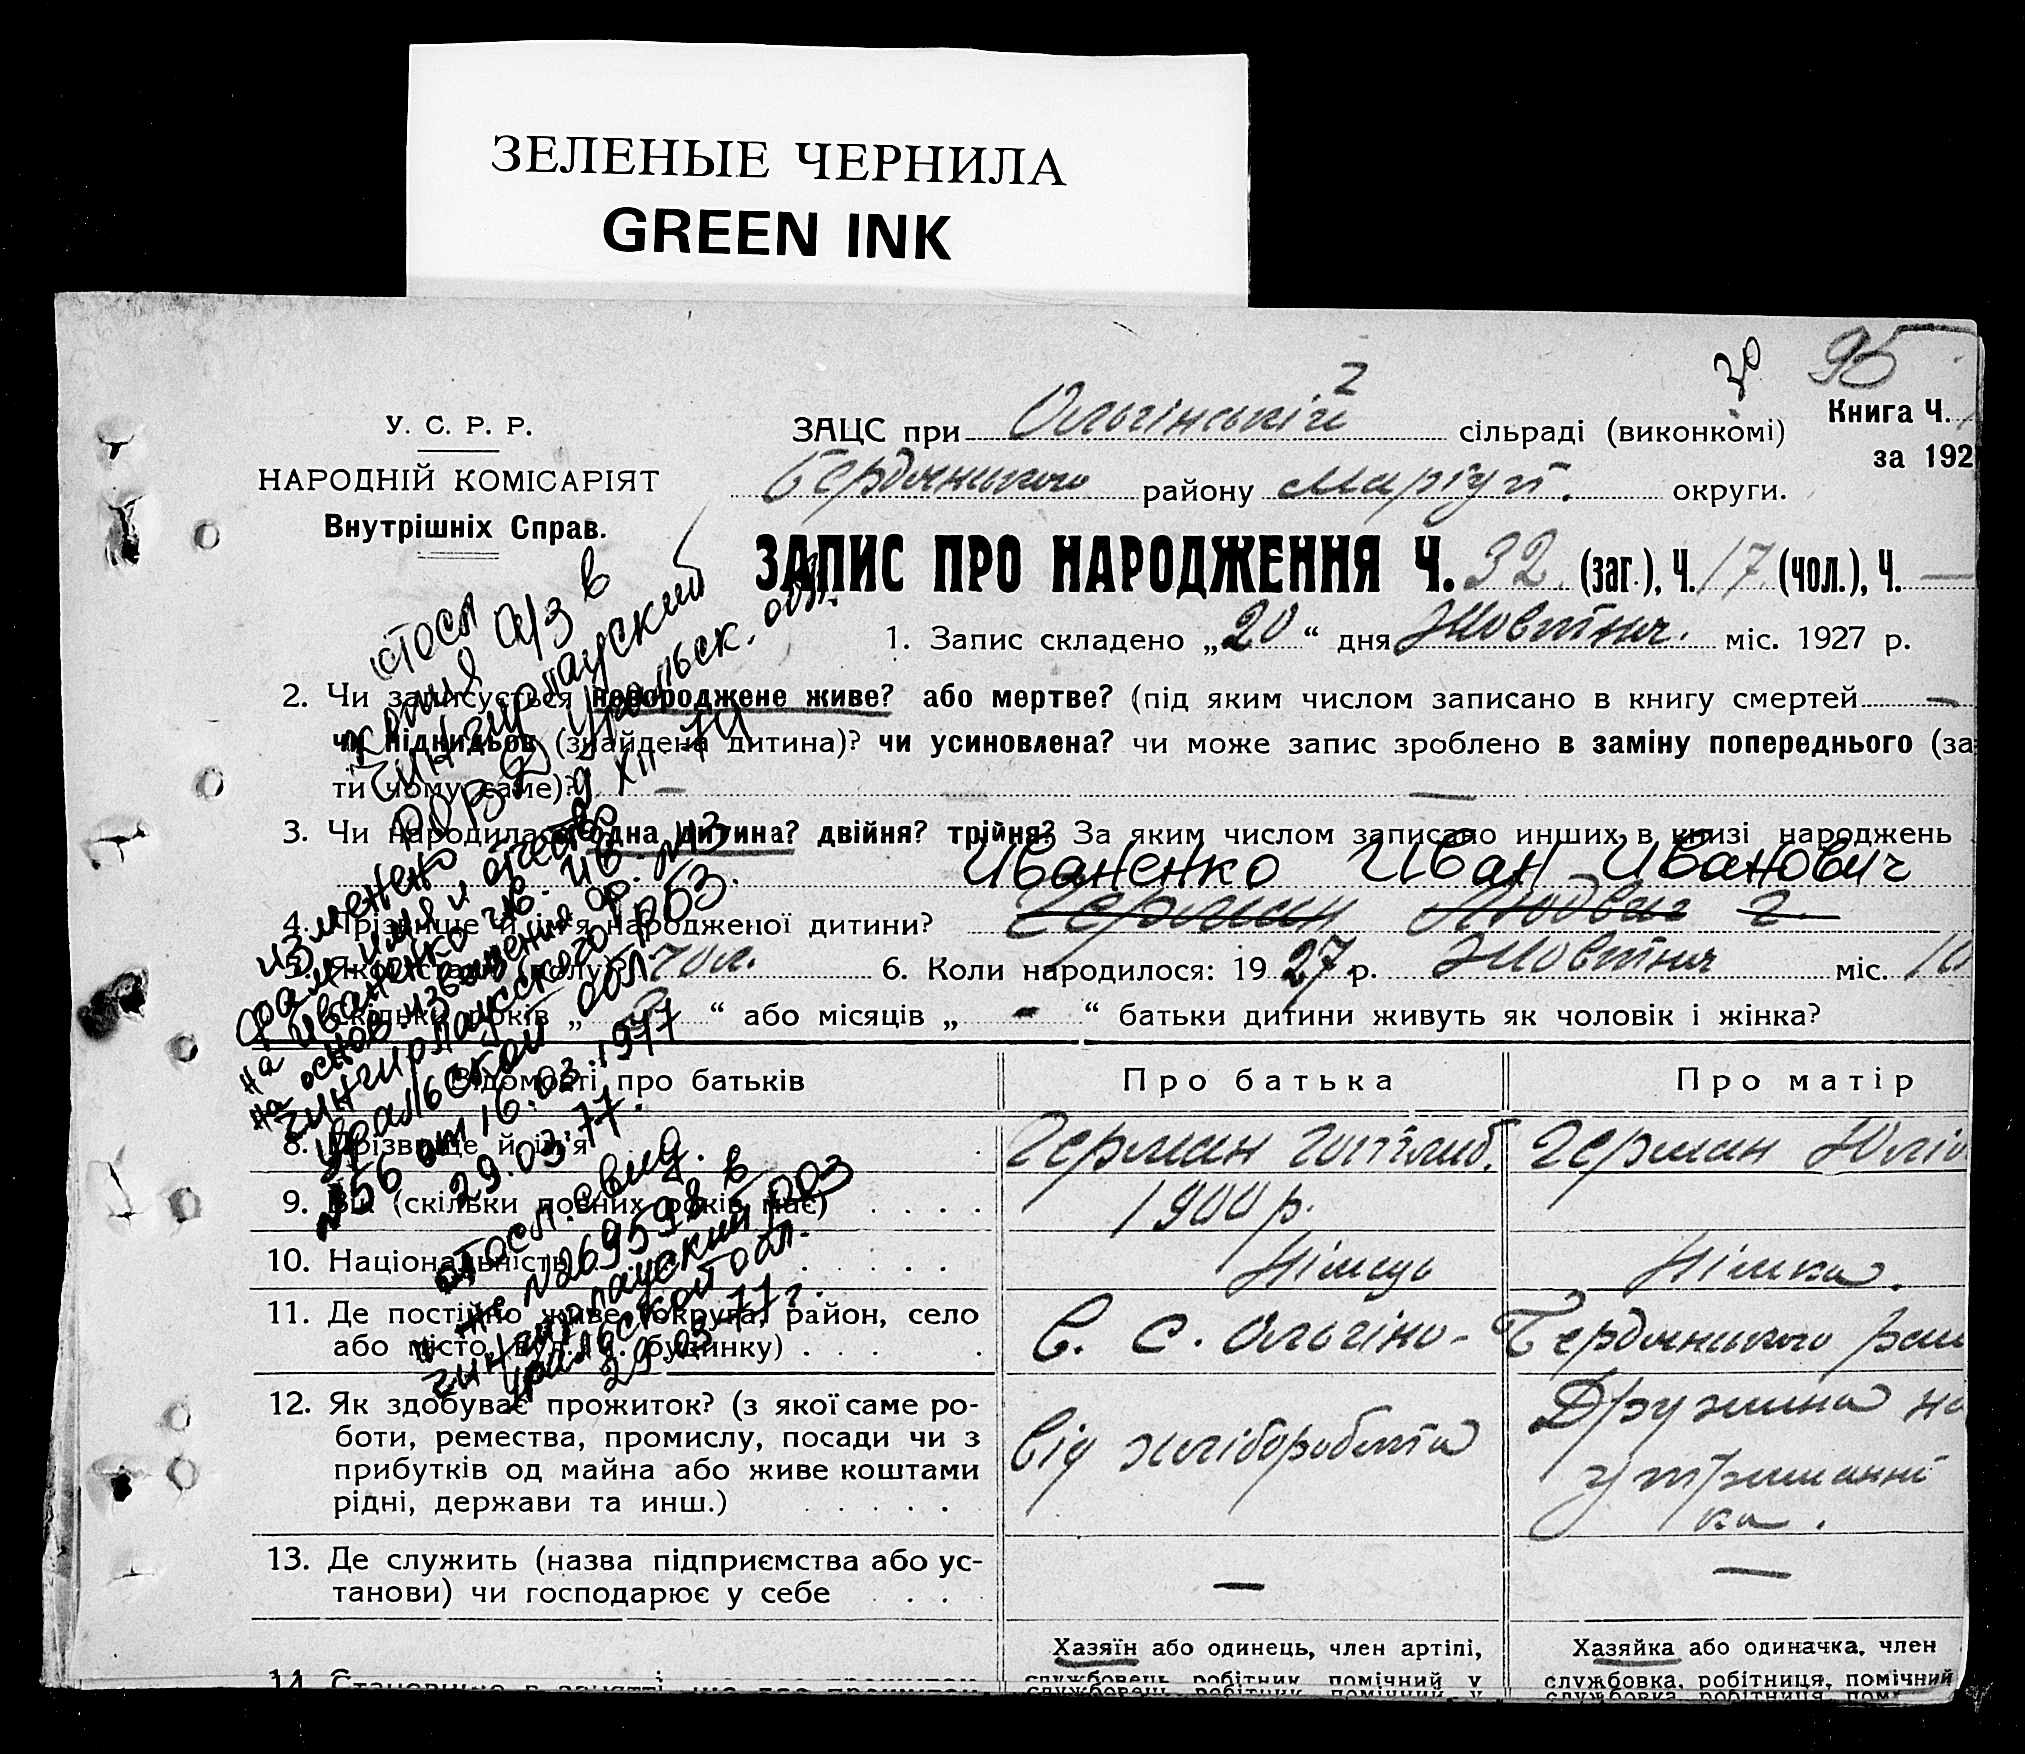 ЗЕЛЕНЫЕ ЧЕРНИЛА
GREEN INK
20 95
2
У. С. Р. Р.
НАРОДНІЙ КОМІСАРІЯТ
Внутрішніх Справ.
ЗАЦС при Ольгінській сільраді (виконкомі)
Книга Ч.
за 192
Бердянського району Маріуп. округи.
ЗАПИС ПРО НАРОДЖЕННЯ Ч. 32 (заг.), Ч. 17 (чол.), Ч. —
1. Запис складено „20“ дня Жовтня. міс. 1927 р.
2. Чи записується новороджене живе? або мертве? (під яким числом записано в книгу смертей —
чи підкидьок (знайдена дитина)? чи усиновлена? чи може запис зроблено в заміну попереднього (за
ти чому саме)? — —
3. Чи народилась одна дитина? двійня? трійня? За яким числом записано инших в книзі народжень
Иваненко Иван Иванович
4. Прізвище й ім'я народженої дитини? Герман Людвиг Г.
5. Якої статі (полу)? чол. 6. Коли народилося: 1927 р. Жовтня міс. 10
Скільки років „ “ або місяців „-“ батьки дитини живуть як чоловік і жінка?
Відомості про батьків
Про батька
Про матір
8. Прізвище й ім'я .
Герман Готліб.
Герман Юлія
9. Вік (скільки повних років має) . . . .
1900 р.
10. Національність . . . .
Німець
Німка.
11. Де постійно живе (округа, район, село
або місто, вул. і № будинку) . . . .
В. С. Ольгіно-
Бердянського рай
12. Як здобуває прожиток? (з якої саме ро-
боти, ремества, промислу, посади чи з
прибутків од майна або живе коштами
рідні, держави та инш.) . . . . .
від хліборобства
Дружина на
утриманні
13. Де служить (назва підприємства або ус-
танови) чи господарює у себе . . .
—
—
Хазяїн або одинець, член артілі,
службовець, робітник, помічний у
Хазяйка або одиначка, член
службовка, робітниця, помічний
14. Становище в занятті, що дає прожиток
копия а/з в
Чингирлауский
Уральск. обл.
XII-70
изменено
фам. имя и отчество
на Иваненко Ив. Ив.
на основ. извещения ф. №13
Чингирлауского рБЗ.
Уральской обл.
№56 от 16.03.1977
29.03.77.
посл. свид.
№ 2695998 в
Чингирлауский роз
Уральской обл.
29.03.77 г.